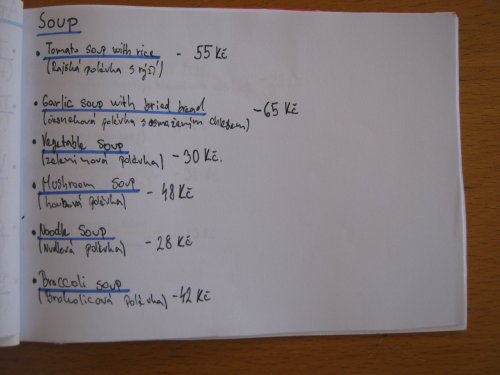 Soup
• Tomato soup with rice - 55 Kč
(Rajská polévka s rýží)
• Garlic soup with bried bread - 65 Kč
(česneková polévka s osmaženým chlebem)
• Vegetable soup
(zeleninová polévka) - 30 Kč.
• Mushroom soup - 48 Kč
(houbová polévka)
• Noodle soup
(Nudlová polévka) - 28 Kč
• Broccoli soup
(Brokolicová polévka) - 42 Kč